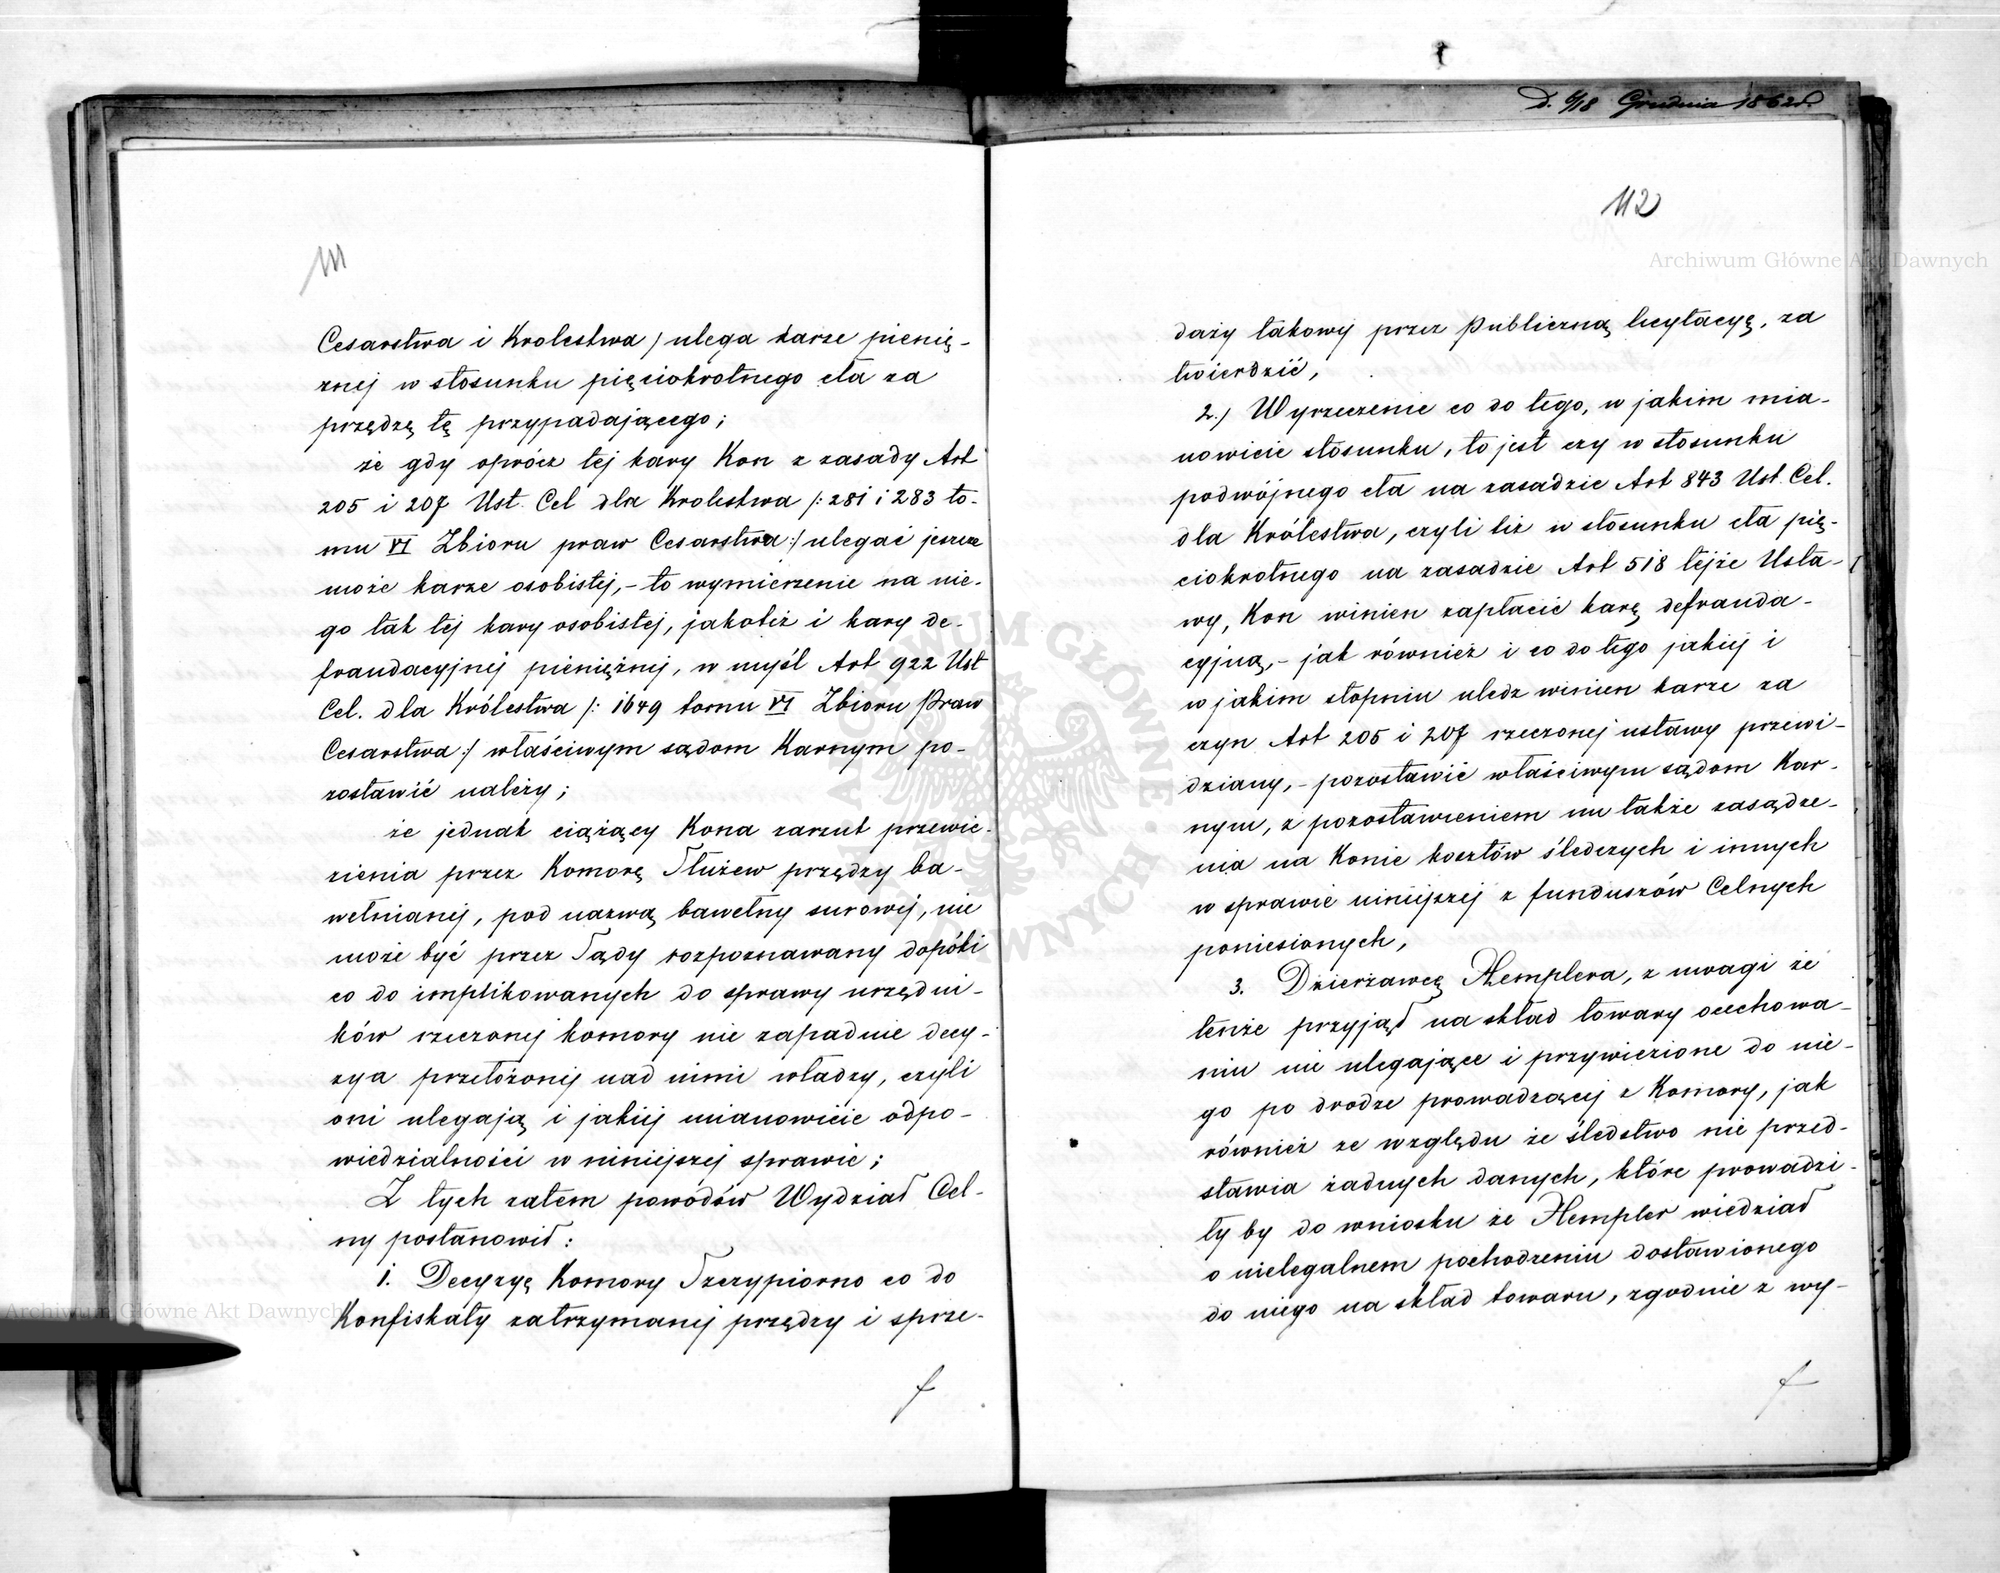 D. 6/18 Grudnia 1862 r.
111
Cesarstwa i Krolestwa / ulega karze pienię-
znej w stosunku pięciokrotnego cła za
przędzę tę przypadającego;
że gdy oprócz tej kary Kon z zasady Art
205 i 207 Ust. Cel dla Krolestwa /: 281 i 283 to-
mu VI Zbioru praw Cesarstwa :/ ulegać jeszcze
może karze osobistej, - to wymierzenie na nie-
go tak tej kary osobistej, jakotiż i kary de-
fraudacyjnej pieniężnej, w myśl Art 922 Ust
Cel. dla Królestwa /: 1649 tomu VI Zbioru Praw
Cesarstwa :/ właściwym sądom Karnym po-
zostawić należy;
że jednak ciążący Kona zarzut przewie-
zienia przez Komorę Służew przędzy ba-
wełnianej, pod nazwą bawełny surowej, nie
może być przez Sądy rozpoznawany dopóki
co do implikowanych do sprawy urzędni-
ków rzeczonej komory nie zapadnie decy-
zya przełożonej nad nimi władzy, czyli
oni ulegają i jakiej mianowicie odpo-
wiedzialności w niniejszej sprawie;
Z tych zatem powodów Wydział Cel-
ny postanowił:
1. Decyzyę Komory Szczypiorno co do
Konfiskaty zatrzymanej przędzy i sprze-
112
daży takowej przez publiczną licytacyę, za
twierdzić,
2.) Wyrzeczenie co do tego, w jakim mia-
nowicie stosunku, to jest czy w stosunku
podwójnego cła na zasadzie Art 843 Ust. Cel.
dla Królestwa, czyli tiż w stosunku cła pię-
ciokrotnego na zasadzie Art 518 tejże Usta-
wy, Kon winien zapłacić karę defrauda-
cyjną, - jak również i co do tego jakiej i
w jakim stopniu uledz winien karze za
czyn Art 205 i 207 rzeczonej ustawy przewi-
dziany, - pozostawić właściwym sądom Kar-
nym, z pozostawieniem im także zasądze-
nia na Konie kosztów śledczych i innych
w sprawie niniejszej z funduszów Celnych
poniesionych,
3. Dzierżawcę Hemplera, z uwagi że
tenże przyjął na skład towary ocechowa-
niu nie ulegające i przywiezione do nie-
go po drodze prowadzącej z Komory, jak
również ze względu że śledstwo nie przed-
stawia żadnych danych, które prowadzi-
ły by do wniosku że Hempler wiedział
o nielegalnem pochodzeniu dostawionego
do niego na skład towaru, zgodnie z wy-
Archiwum Główne Akt Dawnych
Archiwum Główne Akt Dawnych
ARCHIWUM GŁÓWNE AKT DAWNYCH